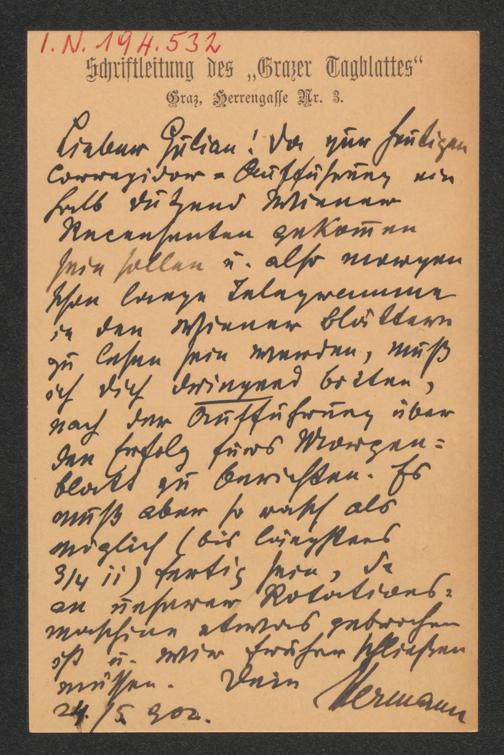 I.N. 194.532
Schriftleitung des „Grazer Tagblattes“
Graz, Herrengasse Nr. 3.
Lieber Julian! Da zur heutigen
Corregidor = Aufführung ein
halb Dutzend Wiener
Recensenten gekommen
sein sollen u. also morgen
schon lange Telegramme
in den Wiener Blättern
zu lesen sein werden, muß
ich dich dringend bitten,
nach der Aufführung über
den Erfolg fürs Morgen=
blatt zu berichten. Es
muß aber so rasch als
möglich (bis längstens
3/4 11) fertig sein, da
an unserer Rotations=
maschine etwas gebrochen
ist u. wir früher schließen
müssen. Dein Hermann
24/5 902.